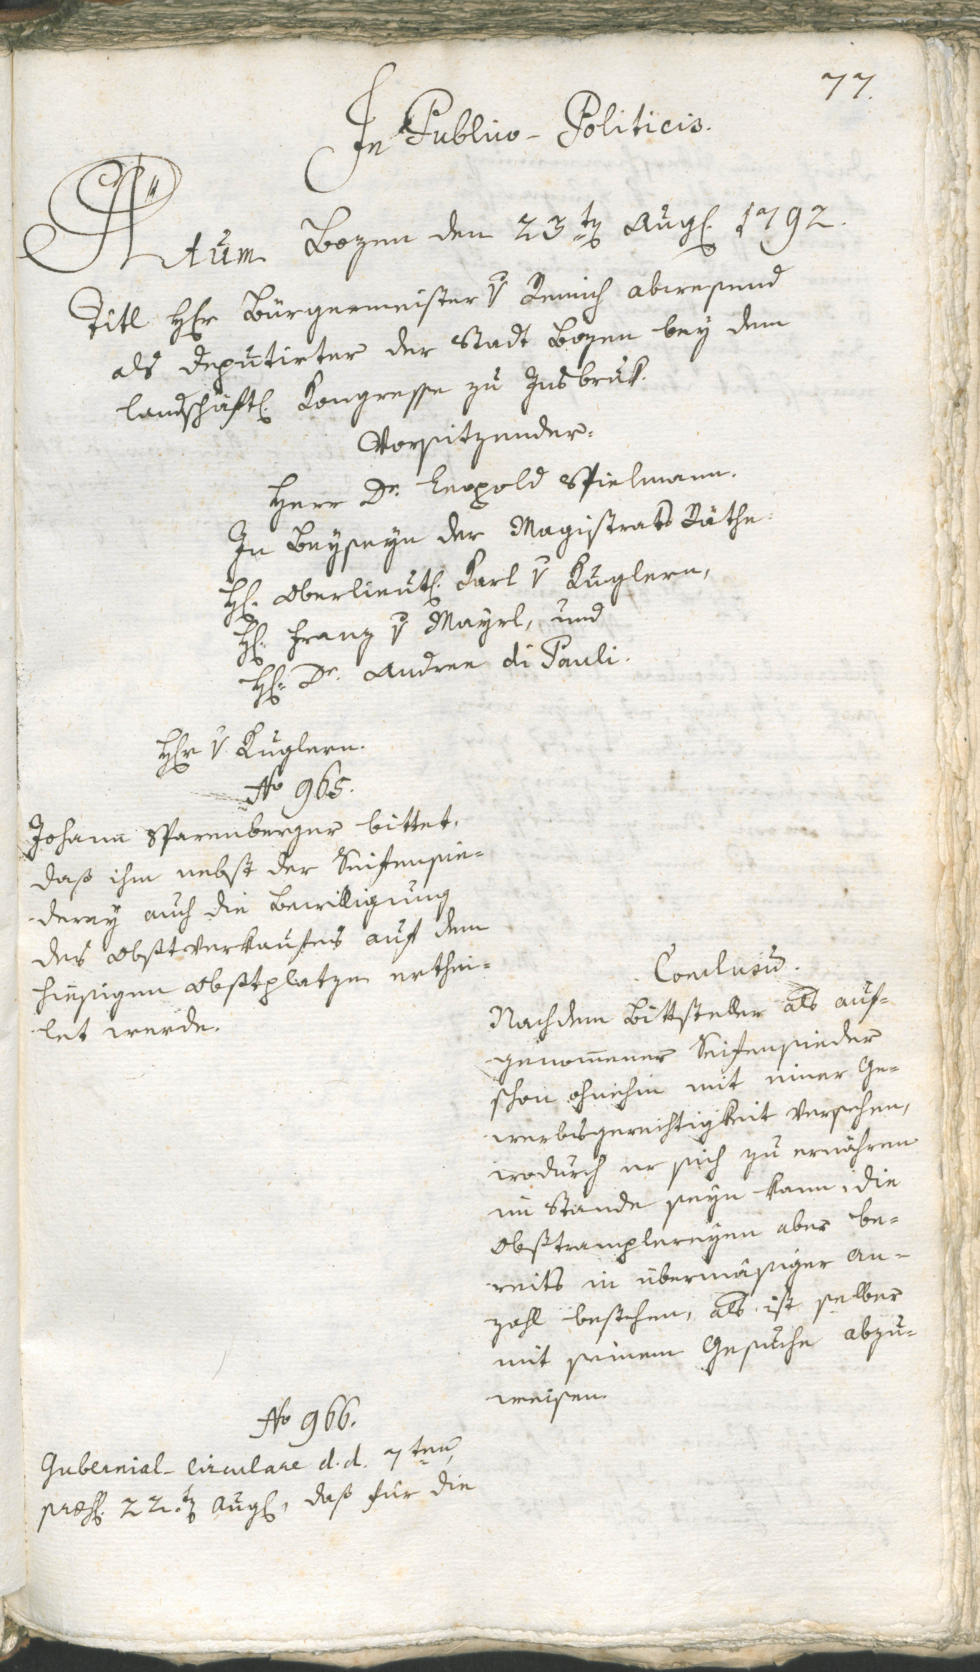 77.
In Publico-Politicis.
Actum Bozen den 23t Augs. 1792.
Titl Hr Bürgermeister v Remich abwesend
als Deputirter der Stadt Bozen bey dem
landschäftl. Kongresse zu Insbruk.
Vorsitzender:
Herr Dr. Leopold Spielmann.
In Beyseyn der Magistrats Räthe:
H. Oberlieut. Karl v Kuglern,
H. Franz v Mayrl, und
H. Dr. Andree di Pauli.
Hr v Kuglern.
No 965.
Johann Sparenberger bittet,
daß ihm nebst der Seifensie=
derey auch die Bewilligung
des Obstverkaufes auf dem
hiesigen Obstplatze erthei=
let werde.
Conclusū.
Nachdem Bittsteller als auf=
genom̄ener Seifensieder
schon ohnehin mit einer Ge=
werbsgerechtigkeit versehen,
wodurch er sich zu ernähren
im Stande seyn kann, die
Obstramplereyen aber be=
reits in übermäsiger An=
zahl bestehen, als ist selber
mit seinem Gesuche abzu=
weisen.
No 966.
Gubernial-Circulare d.d. 7ten,
præs. 22.t Augs, daß für die